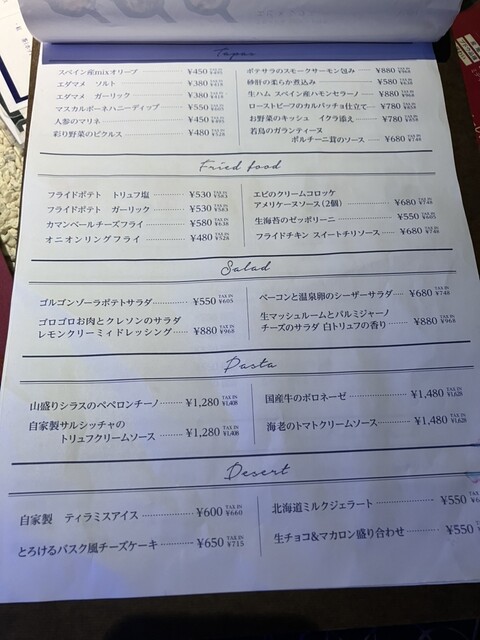 Tapas
スペイン産mixオリーブ ¥450
エダマメ ソルト ¥380
エダマメ ガーリック ¥380
マスカルポーネハニーディップ ¥550
人参のマリネ ¥450
彩り野菜のピクルス ¥480
ポテサラのスモークサーモン包み ¥880
砂肝の柔らか煮込み ¥580
生ハム スペイン産ハモンセラーノ ¥880
ローストビーフのカルパッチョ仕立て ¥780
お野菜のキッシュ イクラ添え ¥780
若鳥のガランティーヌ
ポルチーニ茸のソース ¥680
Fried food
フライドポテト トリュフ塩 ¥530
フライドポテト ガーリック ¥530
カマンベールチーズフライ ¥580
オニオンリングフライ ¥480
エビのクリームコロッケ
アメリケーヌソース(2個) ¥680
生海苔のゼッポリーニ ¥550
フライドチキン スイートチリソース ¥680
Salad
ゴルゴンゾーラポテトサラダ ¥550 TAX IN ¥605
ゴロゴロお肉とクレソンのサラダ
レモンクリーミィドレッシング ¥880 TAX IN ¥968
ベーコンと温泉卵のシーザーサラダ ¥680 TAX IN ¥748
生マッシュルームとパルミジャーノ
チーズのサラダ 白トリュフの香り ¥880 TAX IN ¥968
Pasta
山盛りシラスのペペロンチーノ ¥1,280 TAX IN ¥1,408
自家製サルシッチャの
トリュフクリームソース ¥1,280 TAX IN ¥1,408
国産牛のボロネーゼ ¥1,480 TAX IN ¥1,628
海老のトマトクリームソース ¥1,480 TAX IN ¥1,628
Desert
自家製 ティラミスアイス ¥600 TAX IN ¥660
とろけるバスク風チーズケーキ ¥650 TAX IN ¥715
北海道ミルクジェラート ¥550
生チョコ&マカロン盛り合わせ ¥550